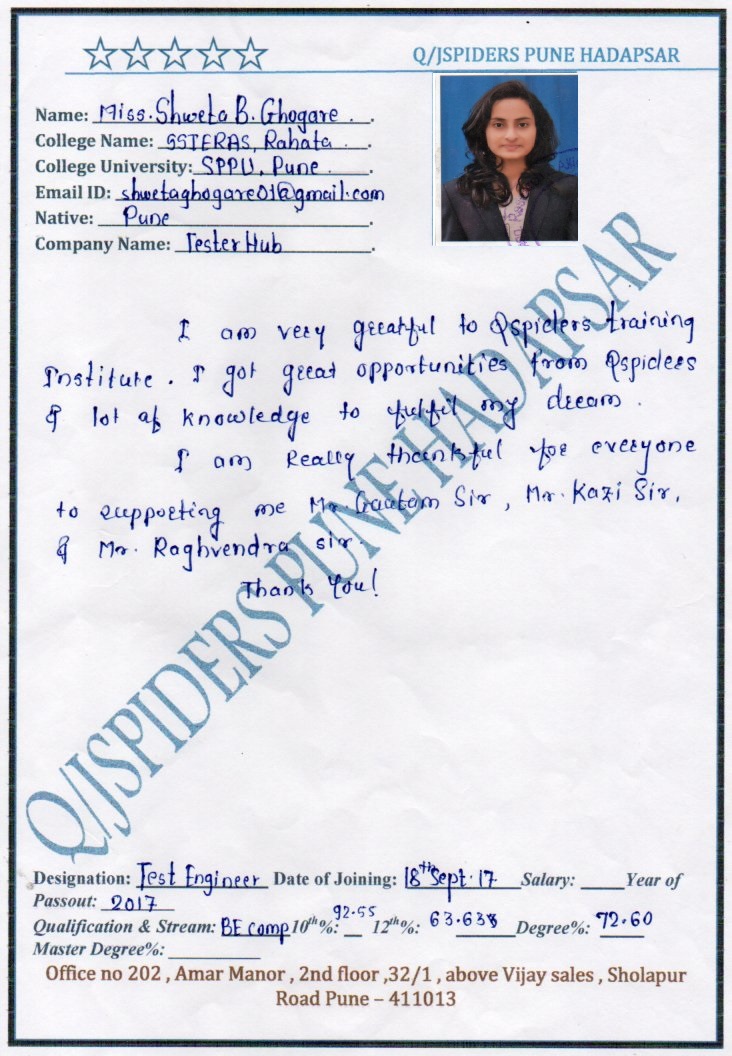 Q/JSPIDERS PUNE HADAPSAR
Name: Miss. Shweta B. Ghogare.
College Name: SSIERAS, Rahata.
College University: SPPU, Pune.
Email ID: shwetaghogare01@gmail.com
Native: Pune.
Company Name: Tester Hub.
I am very greatful to Qspiders training
Institute. I got great opportunities from Qspiders
& lot of knowledge to fulfil my dream.
I am Really thankful for everyone
to supporting me Mr. Gautam Sir, Mr. Kazi Sir,
& Mr. Raghvendra sir.
Thank You!
Q/JSPIDERS PUNE HADAPSAR
Designation: Test Engineer Date of Joining: 18th Sept. 17 Salary: _____ Year of
Passout: 2017
Qualification & Stream: BE comp 10th%: 92.55 12th%: 63.63% Degree%: 72.60
Master Degree%: __________
Office no 202 , Amar Manor , 2nd floor ,32/1 , above Vijay sales , Sholapur
Road Pune – 411013